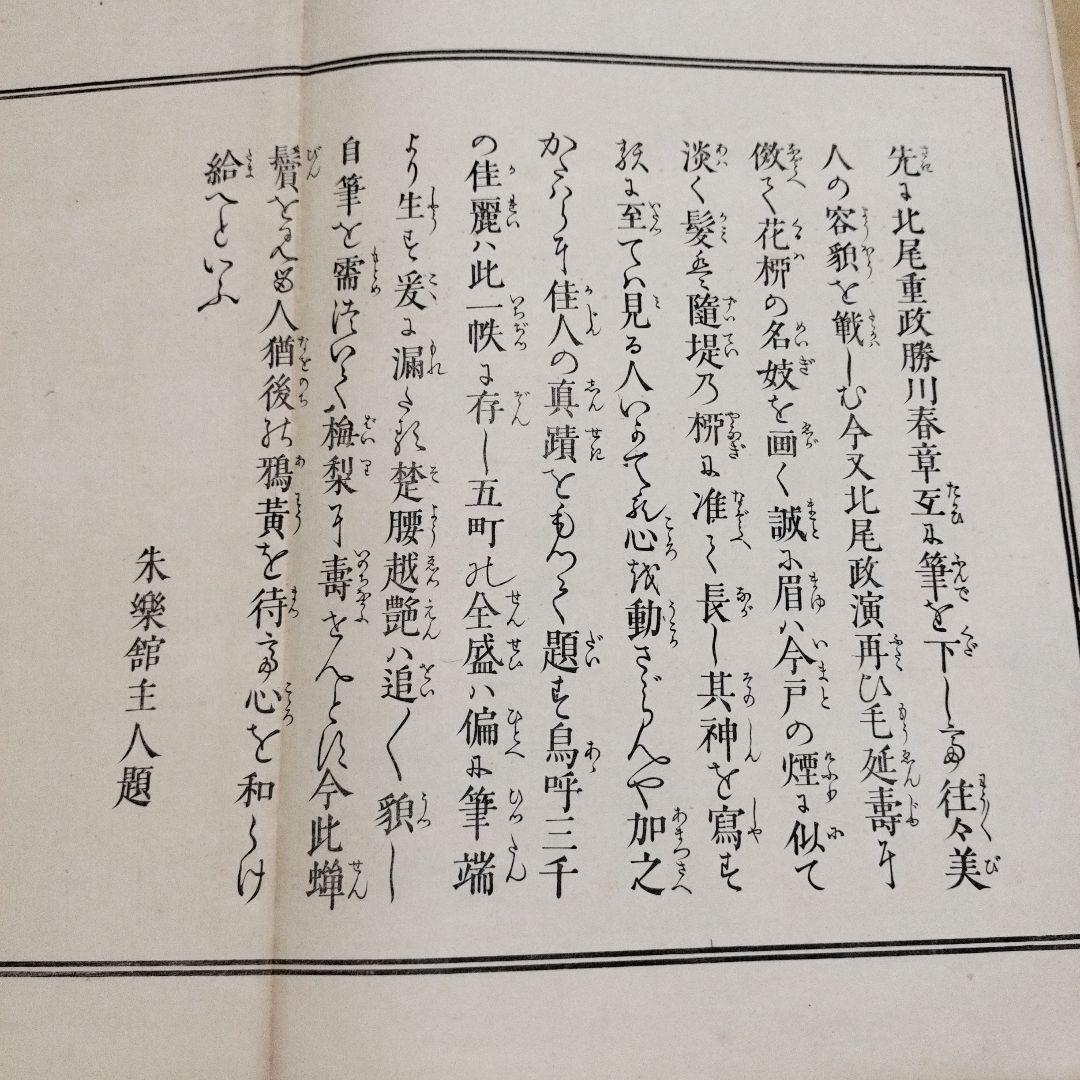 先に北尾重政勝川春章互に筆を下して往々美
人の容貌を戦しむ今又北尾政演再ひ毛延壽に
傚て花柳の名妓を画く誠に眉ハ今戸の煙に似て
淡く髪は隨堤乃柳に准て長し其神を寫す
類に至てハ見る人いかてか心を動さゞらんや加之
かたハらに佳人の真蹟をもつて題す烏呼三千
の佳麗ハ此一帙に存し五町の全盛ハ偏に筆端
より生す爰に漏たる楚腰越艶ハ追〱貌し
自筆を需ついて梅梨に壽せんとす今此蟬
鬢をみる人猶後の鴉黄を待て心を和らけ
給へといふ
朱樂舘主人題